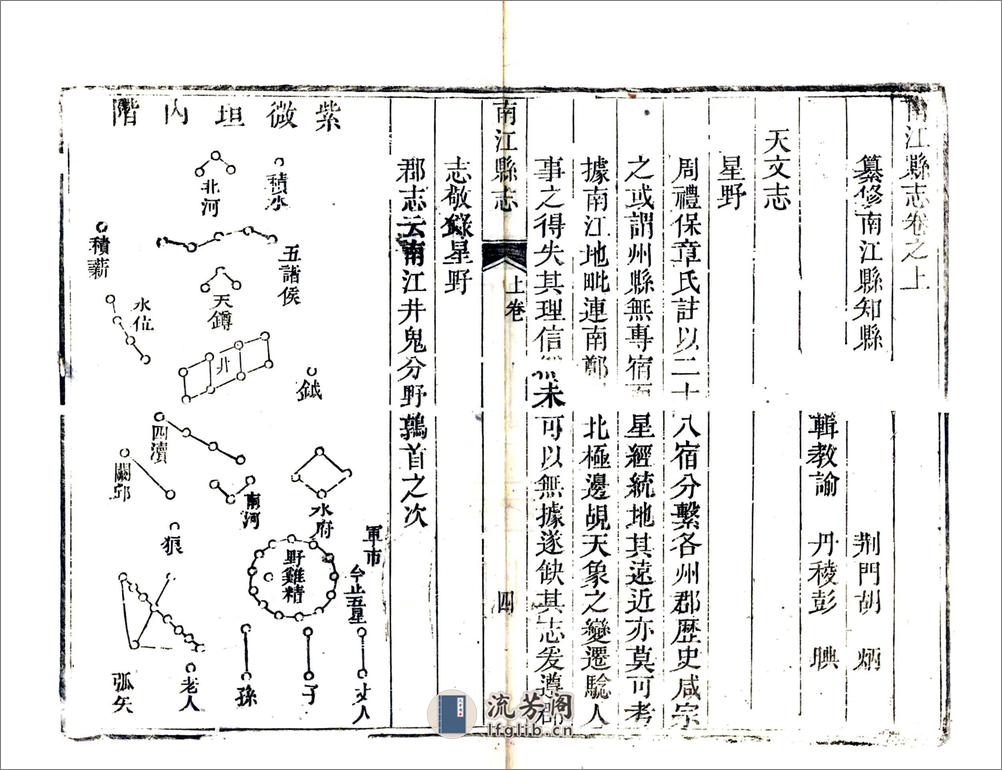 南江縣志卷之上
纂修南江縣知縣 荆門胡炳
輯教諭 丹稜彭腆
天文志
星野
周禮保章氏註以二十八宿分繫各州郡歷史咸宗
之或謂州縣無專宿而星經統地其遠近亦莫可考
據南江地毗連南鄭北極邊覘天象之變遷騐人
事之得失其理信未可以無據遂缺其志爰遵郡
南江縣志
上卷
四
志敬錄星野
郡志云南江井鬼分野鶉首之次
紫微垣内階
積水
北河
五諸侯
積薪
天罇
水位
井
鉞
四瀆
闕邱
南河
水府
軍市
今止五星
野雞精
狼
丈人
子
孫
老人
弧矢
流芳阁
lfglib.cn